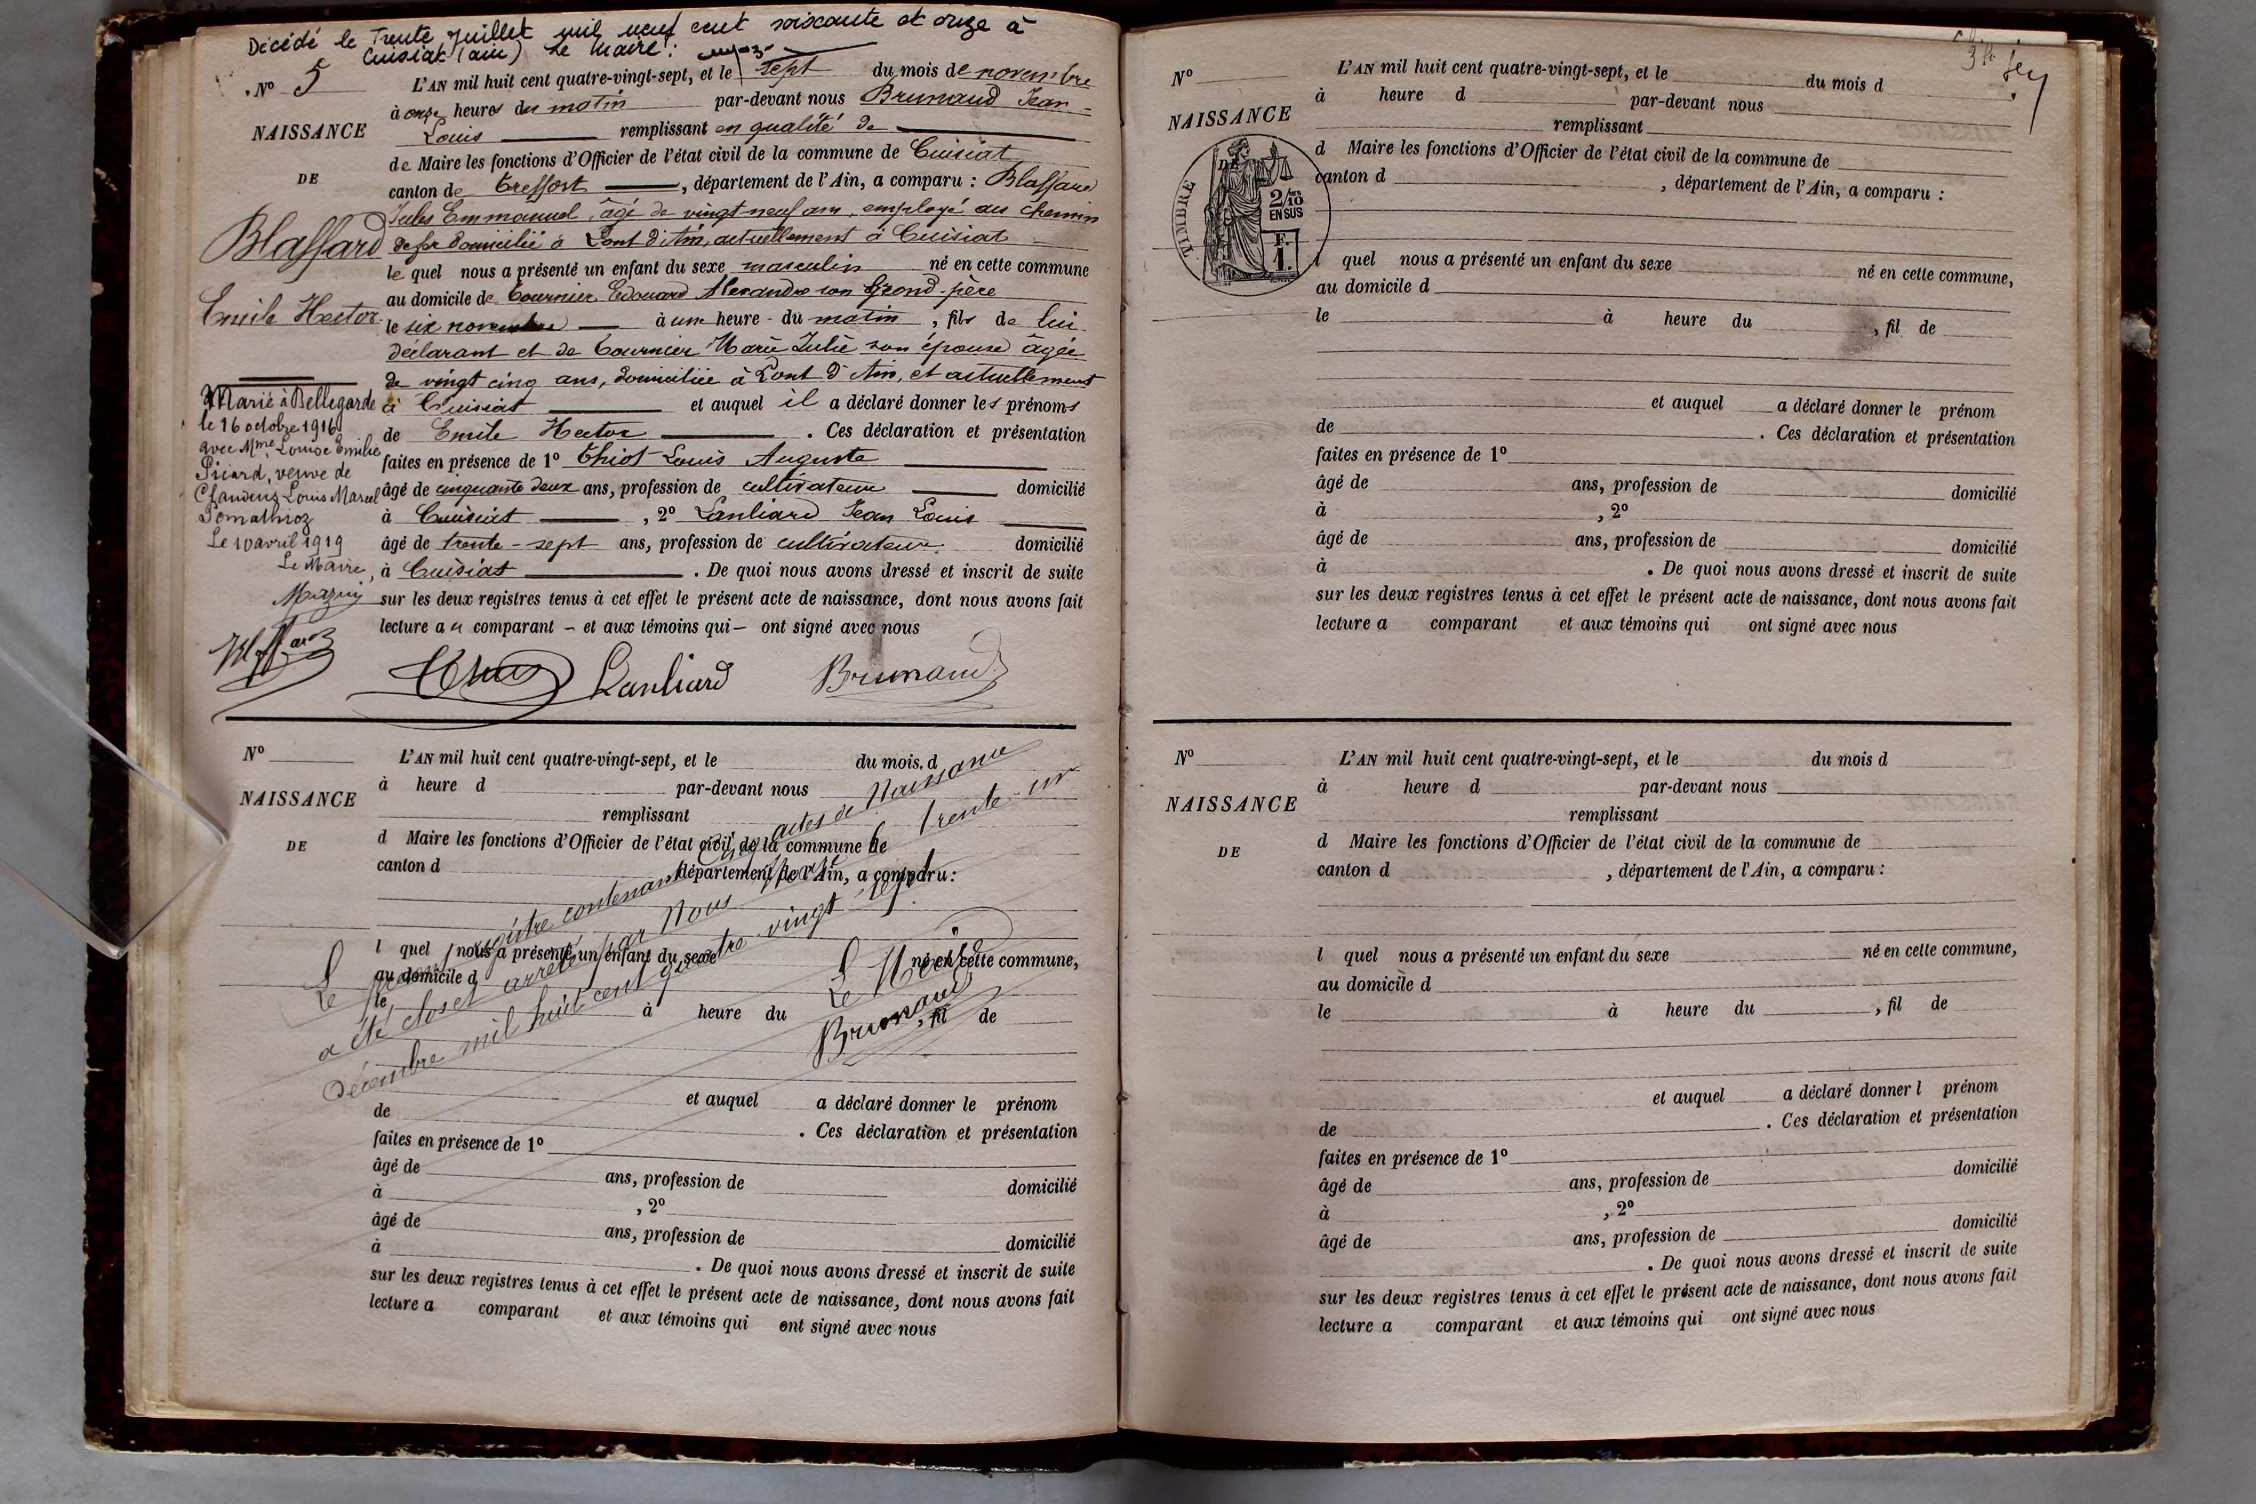 Décédé le Trente Juillet mil neuf cent soixante et onze à
Cuisiat (ain) Le Maire :
N° 5
L'AN mil huit cent quatre-vingt-sept, et le sept du mois de novembre
à onze heures du matin par-devant nous Brunaud Jean
NAISSANCE
Louis remplissant en qualité de
de Maire les fonctions d'Officier de l'état civil de la commune de Cuisiat
DE
canton de Treffort, département de l'Ain, a comparu : Blaffard
Jules Emmanuel, âgé de vingt neuf ans, employé au chemin
Blaffard
de fer domicilié à Pont d'Ain, actuellement à Cuisiat
le quel nous a présenté un enfant du sexe masculin né en cette commune
au domicile de Tournier Edouard Alexandre son Grand-père
Emile Hector
le six novembre à une heure du matin, fils de lui
déclarant et de Tournier Marie Julie son épouse âgée
de vingt cinq ans, domiciliée à Pont d'Ain, et actuellement
à Cuisiat et auquel il a déclaré donner les prénoms
de Emile Hector. Ces déclaration et présentation
faites en présence de 1° Thiot Louis Auguste
âgé de cinquante deux ans, profession de cultivateur domicilié
à Cuisiat, 2° Lanliard Jean Louis
âgé de trente-sept ans, profession de cultivateur domicilié
à Cuisiat. De quoi nous avons dressé et inscrit de suite
sur les deux registres tenus à cet effet le présent acte de naissance, dont nous avons fait
lecture au comparant – et aux témoins qui – ont signé avec nous
Marié à Bellegarde
le 16 octobre 1916
avec Mme Louise Emilie
Picard, veuve de
Claudius Louis Marcel
Pomathioz
Le 10 avril 1919
Le Maire,
Lanliard Brunaud
N°
L'AN mil huit cent quatre-vingt-sept, et le du mois d
à heure d par-devant nous
NAISSANCE
remplissant
d Maire les fonctions d'Officier de l'état civil de la commune de
DE
canton d département de l'Ain, a comparu :
l quel nous a présenté un enfant du sexe né en cette commune,
au domicile d
le à heure du , fil de
et auquel a déclaré donner le prénom
de . Ces déclaration et présentation
faites en présence de 1°
âgé de ans, profession de domicilié
à , 2°
âgé de ans, profession de domicilié
à . De quoi nous avons dressé et inscrit de suite
sur les deux registres tenus à cet effet le présent acte de naissance, dont nous avons fait
lecture a comparant et aux témoins qui ont signé avec nous
Le présent registre contenant cinq actes de Naissance
a été clos et arrêté par Nous Maire le trente-un
Décembre mil huit cent quatre-vingt-sept.
Le Maire
Brunaud
N°
L'AN mil huit cent quatre-vingt-sept, et le du mois d
à heure d par-devant nous
NAISSANCE
remplissant
d Maire les fonctions d'Officier de l'état civil de la commune de
DE
canton d , département de l'Ain, a comparu :
TIMBRE
2/10 EN SUS
F. 1.
l quel nous a présenté un enfant du sexe né en cette commune,
au domicile d
le à heure du , fil de
et auquel a déclaré donner le prénom
de . Ces déclaration et présentation
faites en présence de 1°
âgé de ans, profession de domicilié
à , 2°
âgé de ans, profession de domicilié
à . De quoi nous avons dressé et inscrit de suite
sur les deux registres tenus à cet effet le présent acte de naissance, dont nous avons fait
lecture a comparant et aux témoins qui ont signé avec nous
N°
L'AN mil huit cent quatre-vingt-sept, et le du mois d
à heure d par-devant nous
NAISSANCE
remplissant
d Maire les fonctions d'Officier de l'état civil de la commune de
DE
canton d , département de l'Ain, a comparu :
l quel nous a présenté un enfant du sexe né en cette commune,
au domicile d
le à heure du , fil de
et auquel a déclaré donner l prénom
de . Ces déclaration et présentation
faites en présence de 1°
âgé de ans, profession de domicilié
à , 2°
âgé de ans, profession de domicilié
. De quoi nous avons dressé et inscrit de suite
sur les deux registres tenus à cet effet le présent acte de naissance, dont nous avons fait
lecture a comparant et aux témoins qui ont signé avec nous